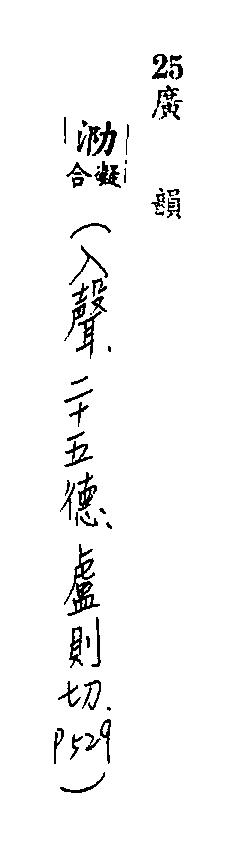 25 廣韻
泐 凝合
(入聲、二十五德、盧則切、P529)